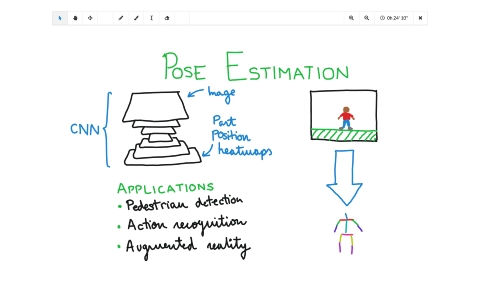 0h 24' 10"
POSE ESTIMATION
Image
CNN
Part
Position
heatmaps
APPLICATIONS
• Pedestrian detection
• Action recognition
• Augmented reality